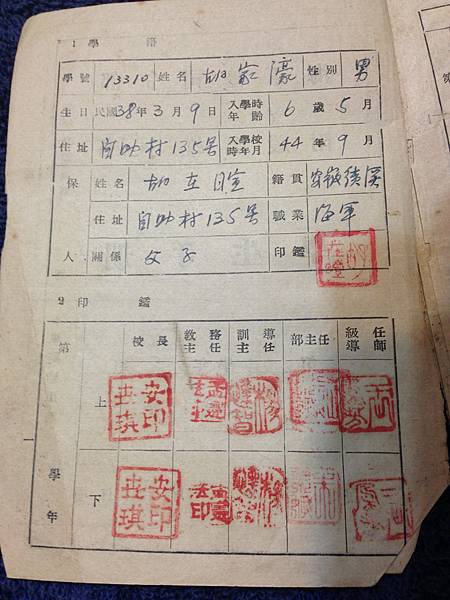 1 學 籍
學號 13310 姓名 胡家濠 性別 男
生日 民國38年3月9日 入學時年齡 6歲5月
住址 自助村135号 入學校時年月 44年9月
保 姓名 胡在暄 籍貫 安徽績溪
住址 自助村135号 職業 海軍
人 關係 父子 印鑑
2 印 鑑
第 校長 教務主任 訓導主任 部主任 級任導師
上
安印世琪
學年 下
安印世琪
第